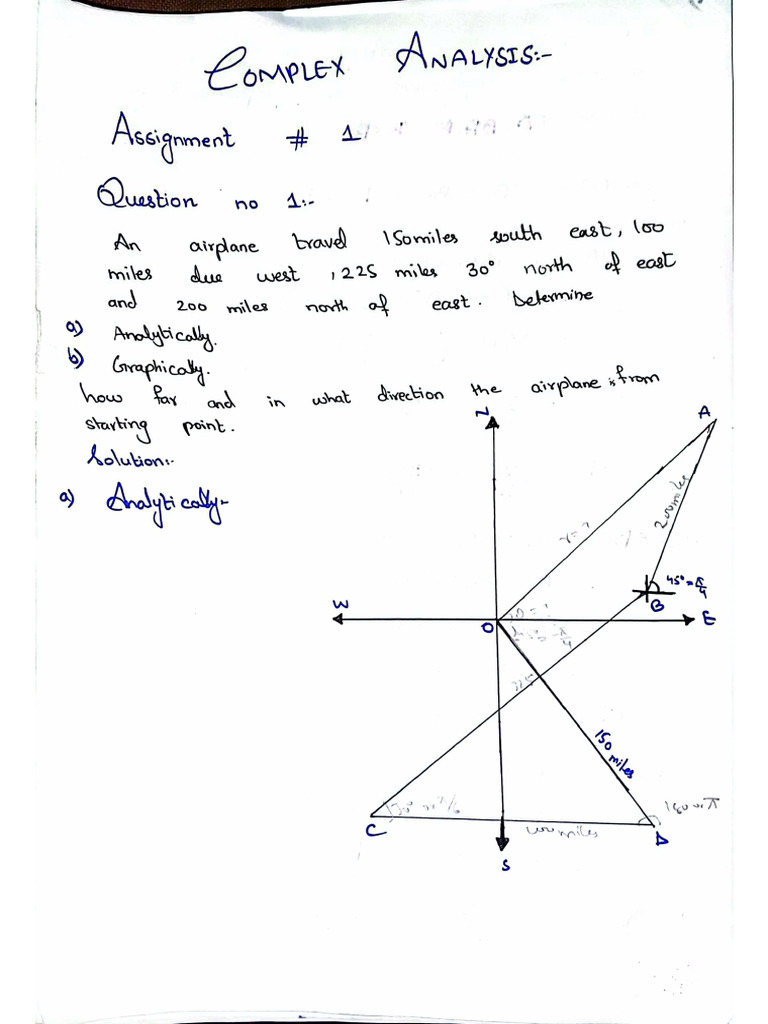 COMPLEX ANALYSIS:-
Assignment # 1
Question no 1:-
An airplane travel 150miles south east, 100
miles due west , 225 miles 30° north of east
and 200 miles north of east. Determine
a) Analytically.
b) Graphically.
how far and in what direction the airplane is from
starting point.
Solution:-
a) Analytically:-
N
A
r=?
200miles
45°=π/4
B
W
O
θ=?
E
-π/4
225
150 miles
30° or π/6
180 or π
C
100miles
D
S